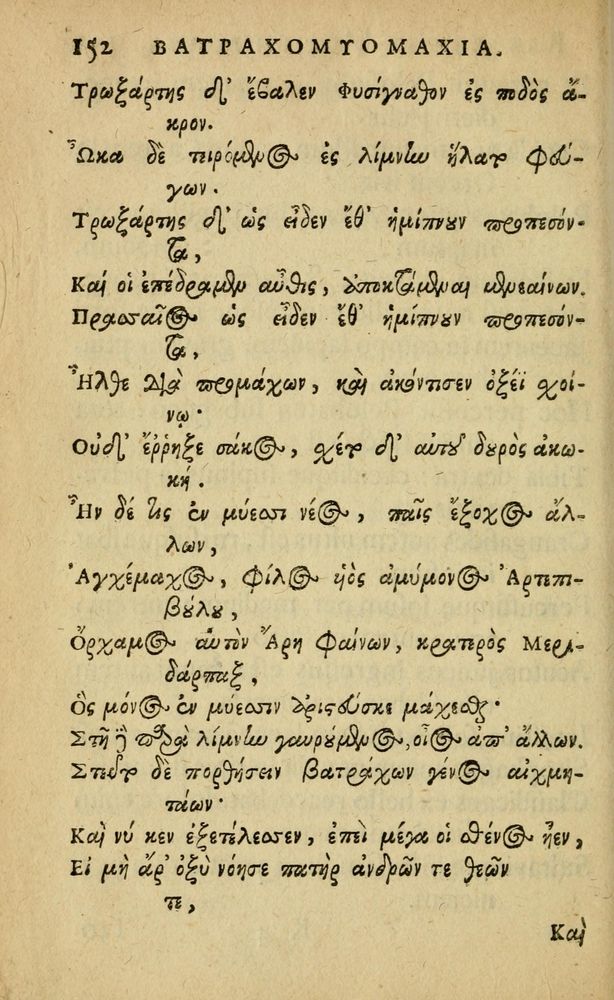 152 ΒΑΤΡΑΧΟΜΥΟΜΑΧΙΑ.
Τρωξάρτης δ' ἔβαλεν Φυσίγναθον ἐς ποδὸς ἄ-
κρον.
Ὦκα δὲ τειρόμενος ἐς λίμνην ἥλατο φεύ-
γων.
Τρωξάρτης δ' ὡς εἶδεν ἔθ' ἡμίπνουν προπεσόν-
τα,
Καί οἱ ἐπέδραμεν αὖθις, ἀποκτάμεναι μενεαίνων.
Πρασσαῖος ὡς εἶδεν ἔθ' ἡμίπνουν προπεσόν-
τα,
Ἦλθε διὰ προμάχων, καὶ ἀκόντισεν ὀξέϊ σχοί-
νῳ·
Οὐδ' ἔῤῥηξε σάκος, σχέτο δ' αὐτοῦ δουρὸς ἀκω-
κή.
Ἦν δέ τις ἐν μύεσσι νέος, παῖς ἔξοχος ἄλ-
λων,
Ἀγχέμαχος, φίλος υἱὸς ἀμύμονος Ἀρτεπι-
βούλου,
Ὄρχαμος αὐτὸν Ἄρη φαίνων, κρατερὸς Μερι-
δάρπαξ,
Ὃς μόνος ἐν μύεσσιν ἀρίστευσκε μάχεσθαι·
Στῆ δὲ παρὰ λίμνην γαυρούμενος, οἶος ἀπ' ἄλλων.
Στεῦτο δὲ πορθήσειν βατράχων γένος αἰχμη-
τάων·
Καὶ νύ κεν ἐξετέλεσσεν, ἐπεὶ μέγα οἱ σθένος ἦεν,
Εἰ μὴ ἄρ' ὀξὺ νόησε πατὴρ ἀνδρῶν τε θεῶν
τε,
Καὶ